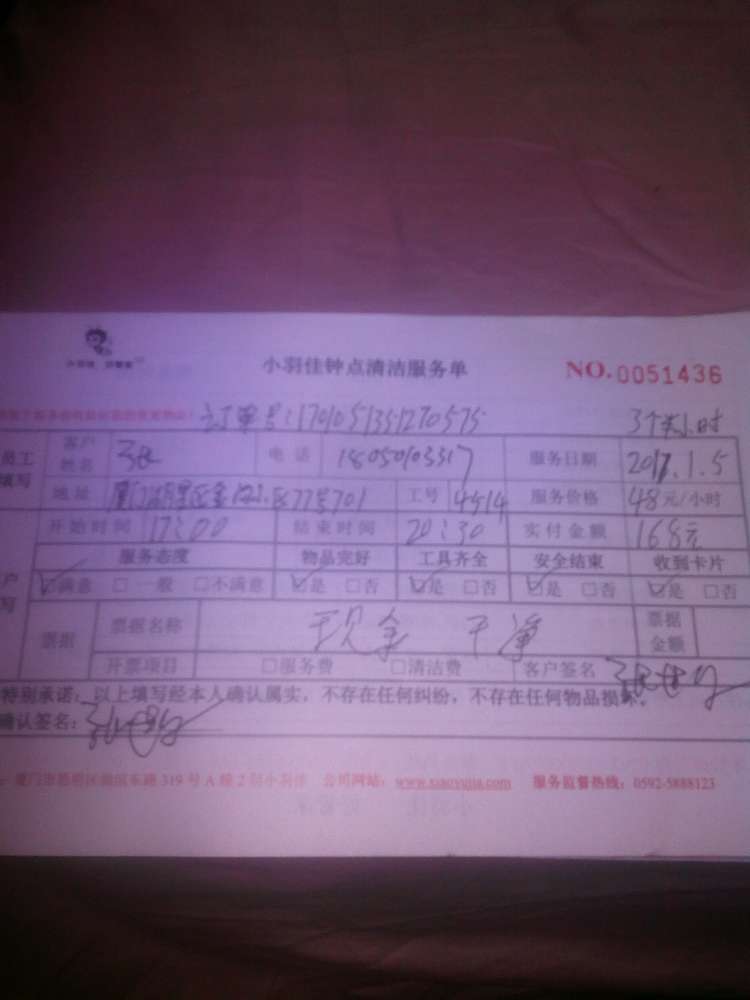 小羽佳钟点清洁服务单 NO.0051436
订单号:1701051351270575 3个半小时
员工填写 客户姓名 张 电话 18050103317 服务日期 2017.1.5
地址 厦门 701 工号 4514 服务价格 48元/小时
开始时间 17:00 结束时间 20:30 实付金额 168元
服务态度 物品完好 工具齐全 安全结束 收到卡片
☑满意 □一般 □不满意 ☑是 □否 ☑是 □否 ☑是 □否 ☑是 □否
票据 票据名称 现金 干净 票据金额
开票项目 □服务费 □清洁费 客户签名
特别承诺:以上填写经本人确认属实,不存在任何纠纷,不存在任何物品损坏。
确认签名:
319号A幢2层小羽佳 公司网站:www.xiaoyujia.com 服务监督热线:0592-5888123